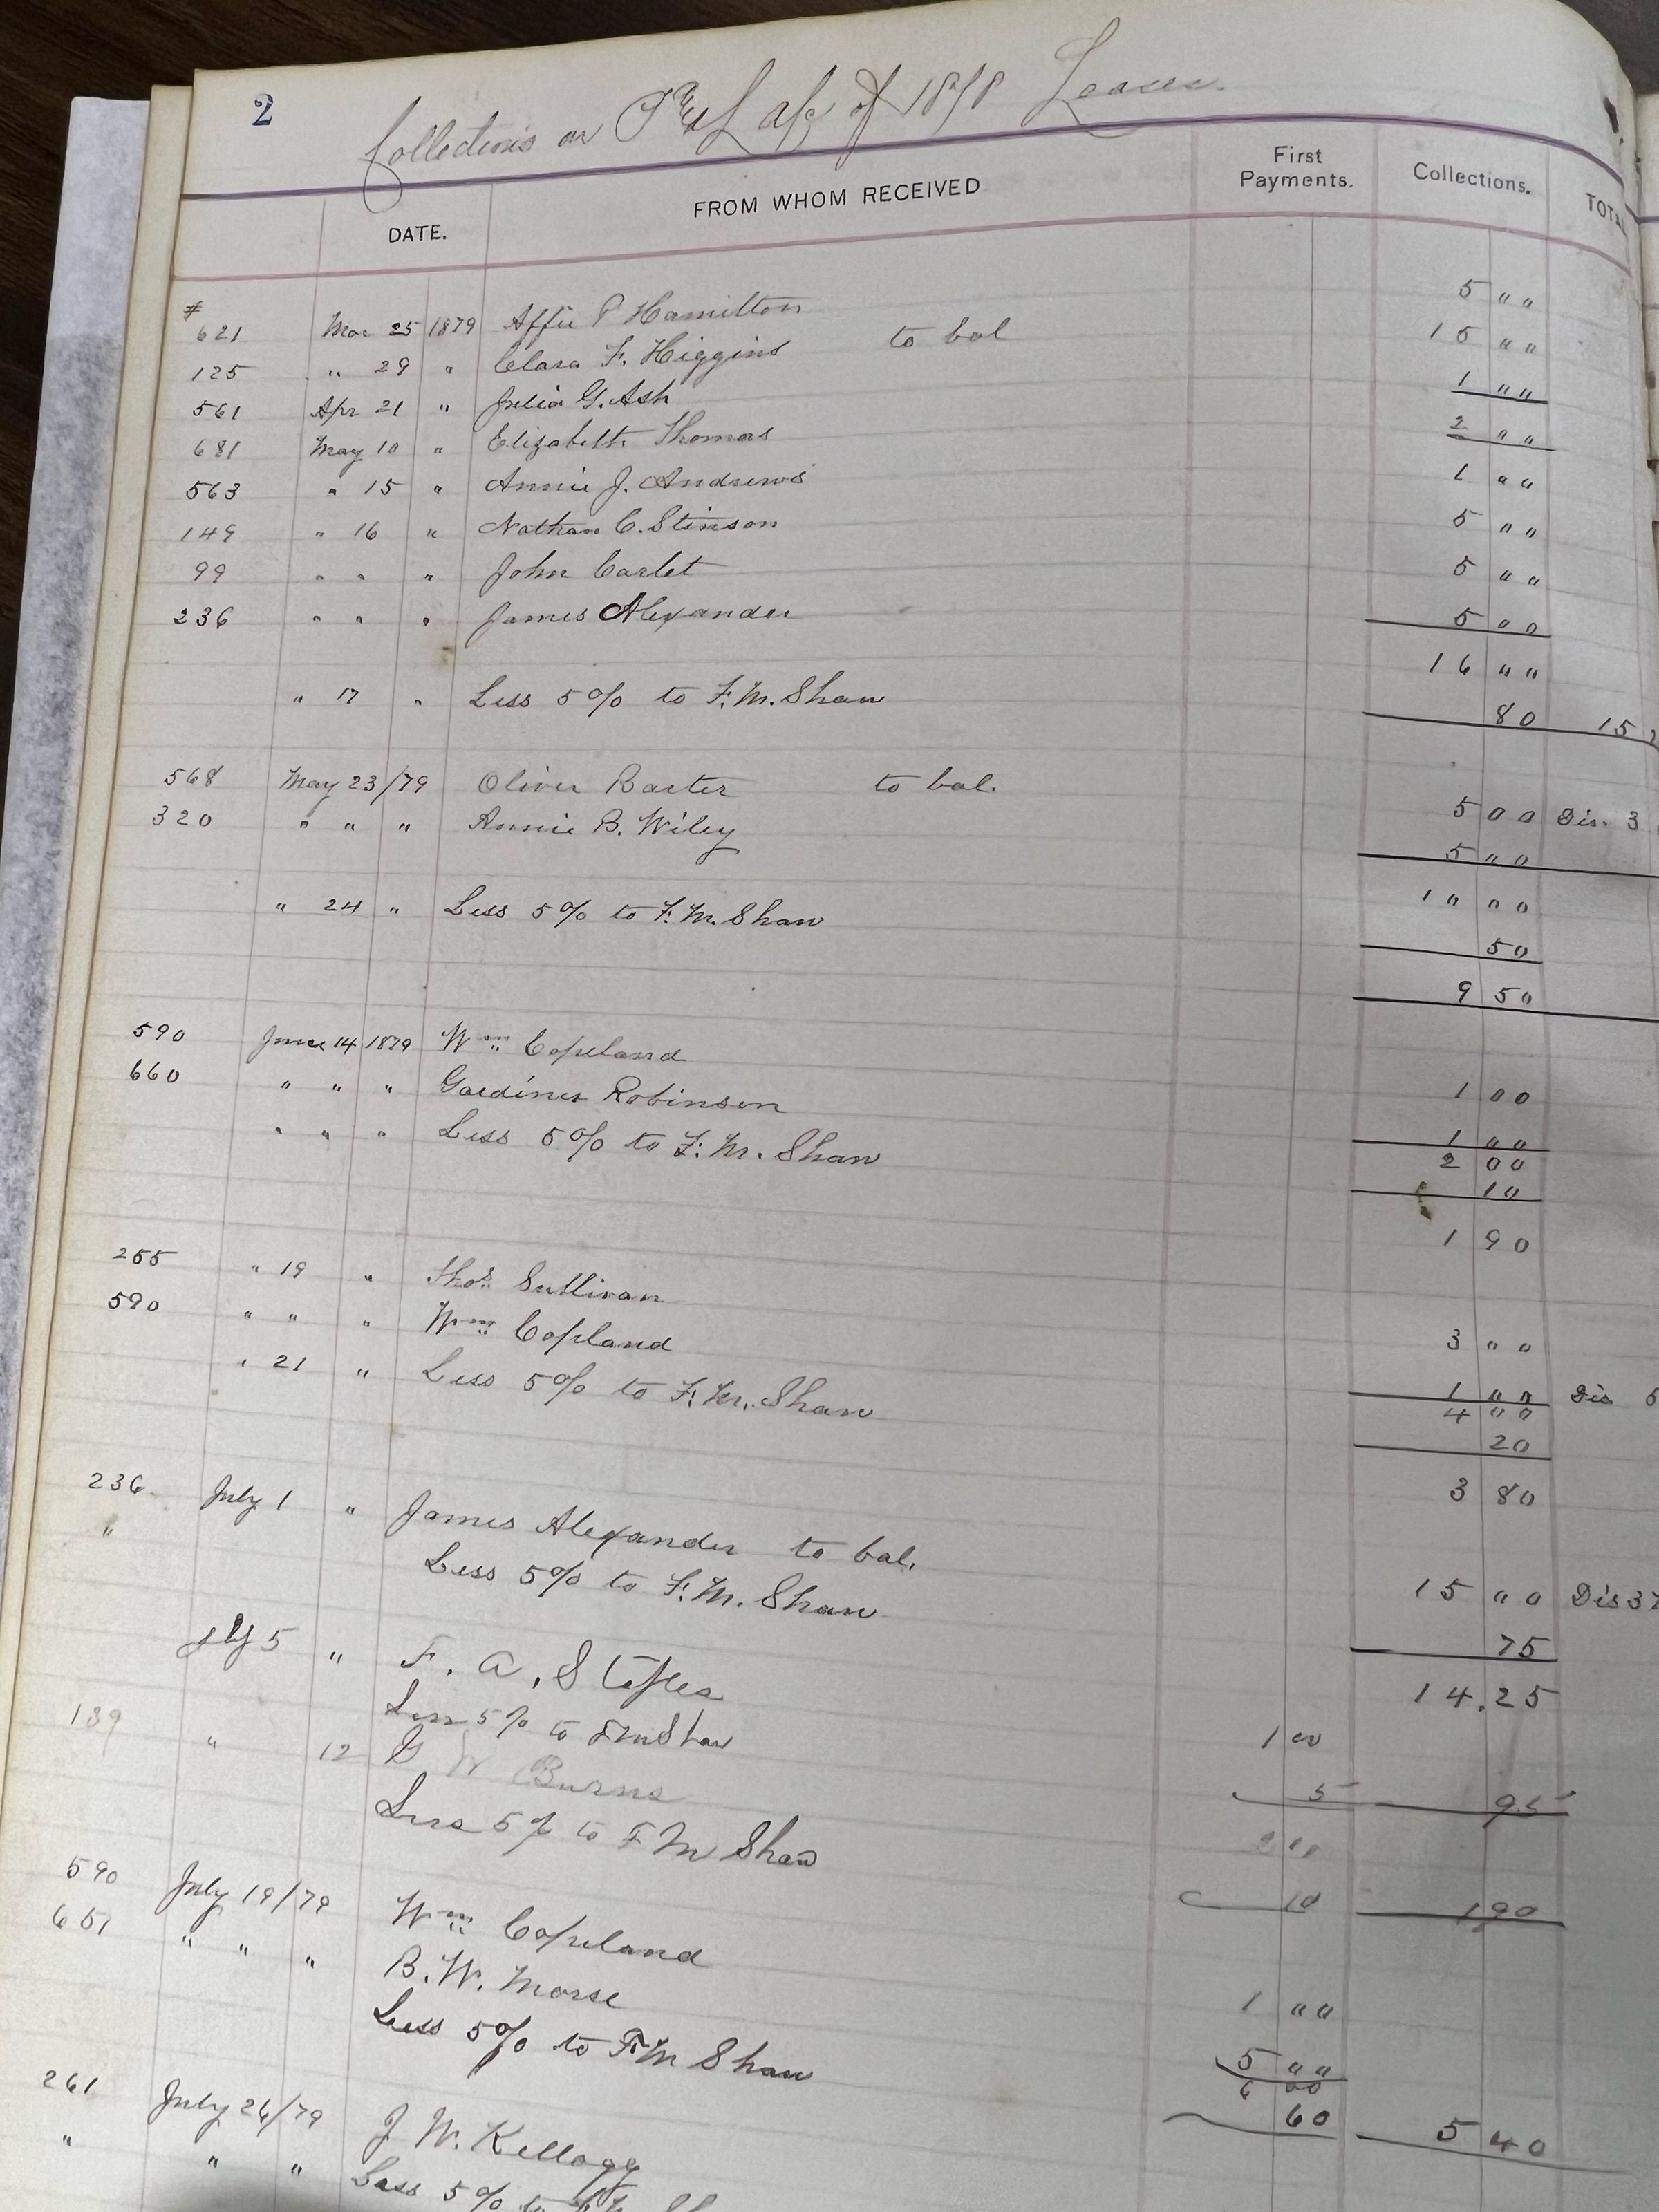 2
Collections on P & L a/c of 1878 Leases.
DATE. FROM WHOM RECEIVED First Payments. Collections. TOTA
# 621 Mar 25 1879 Affie P Hamilton 5 " "
125 " 29 " Clara F. Higgins to bal 15 " "
561 Apr 21 " Julia G. Ash 1 " "
681 May 10 " Elizabeth Thomas 2 " "
563 " 15 " Annie J. Andrews 1 " "
149 " 16 " Nathan C. Stinson 5 " "
99 " " " John Carlet 5 " "
236 " " " James Alexander 5 00
16 " "
" 17 " Less 5% to F. M. Shaw 80 15
568 May 23/79 Oliver Baxter to bal. 5 00 Dis. 3
320 " " " Annie B. Wiley 5 00
10 00
" 24 " Less 5% to F. M. Shaw 50
9 50
590 June 14 1879 Wm Copeland 1 00
660 " " " Gardiner Robinson 1 00
2 00
" " " Less 5% to F. M. Shaw 10
1 90
255 " 19 " Thos Sullivan 3 " "
590 " " " Wm Copland 1 00 Dis 5
4 " "
" 21 " Less 5% to F. M. Shaw 20
3 80
236 July 1 " James Alexander to bal. 15 00 Dis 37
" Less 5% to F. M. Shaw 75
14.25
July 5 " F. A. Staples 1 00
Less 5% to F M Shaw 5 95
139 " 12 G W Burns 2 00
Less 5% to F M Shaw 10 1 90
590 July 19/79 Wm Copeland 1 " "
651 " " " B. W. Morse 5 " "
6 00
Less 5% to F M Shaw 60 5 40
261 July 26/79 J W. Kellogg
" " " Less 5% to